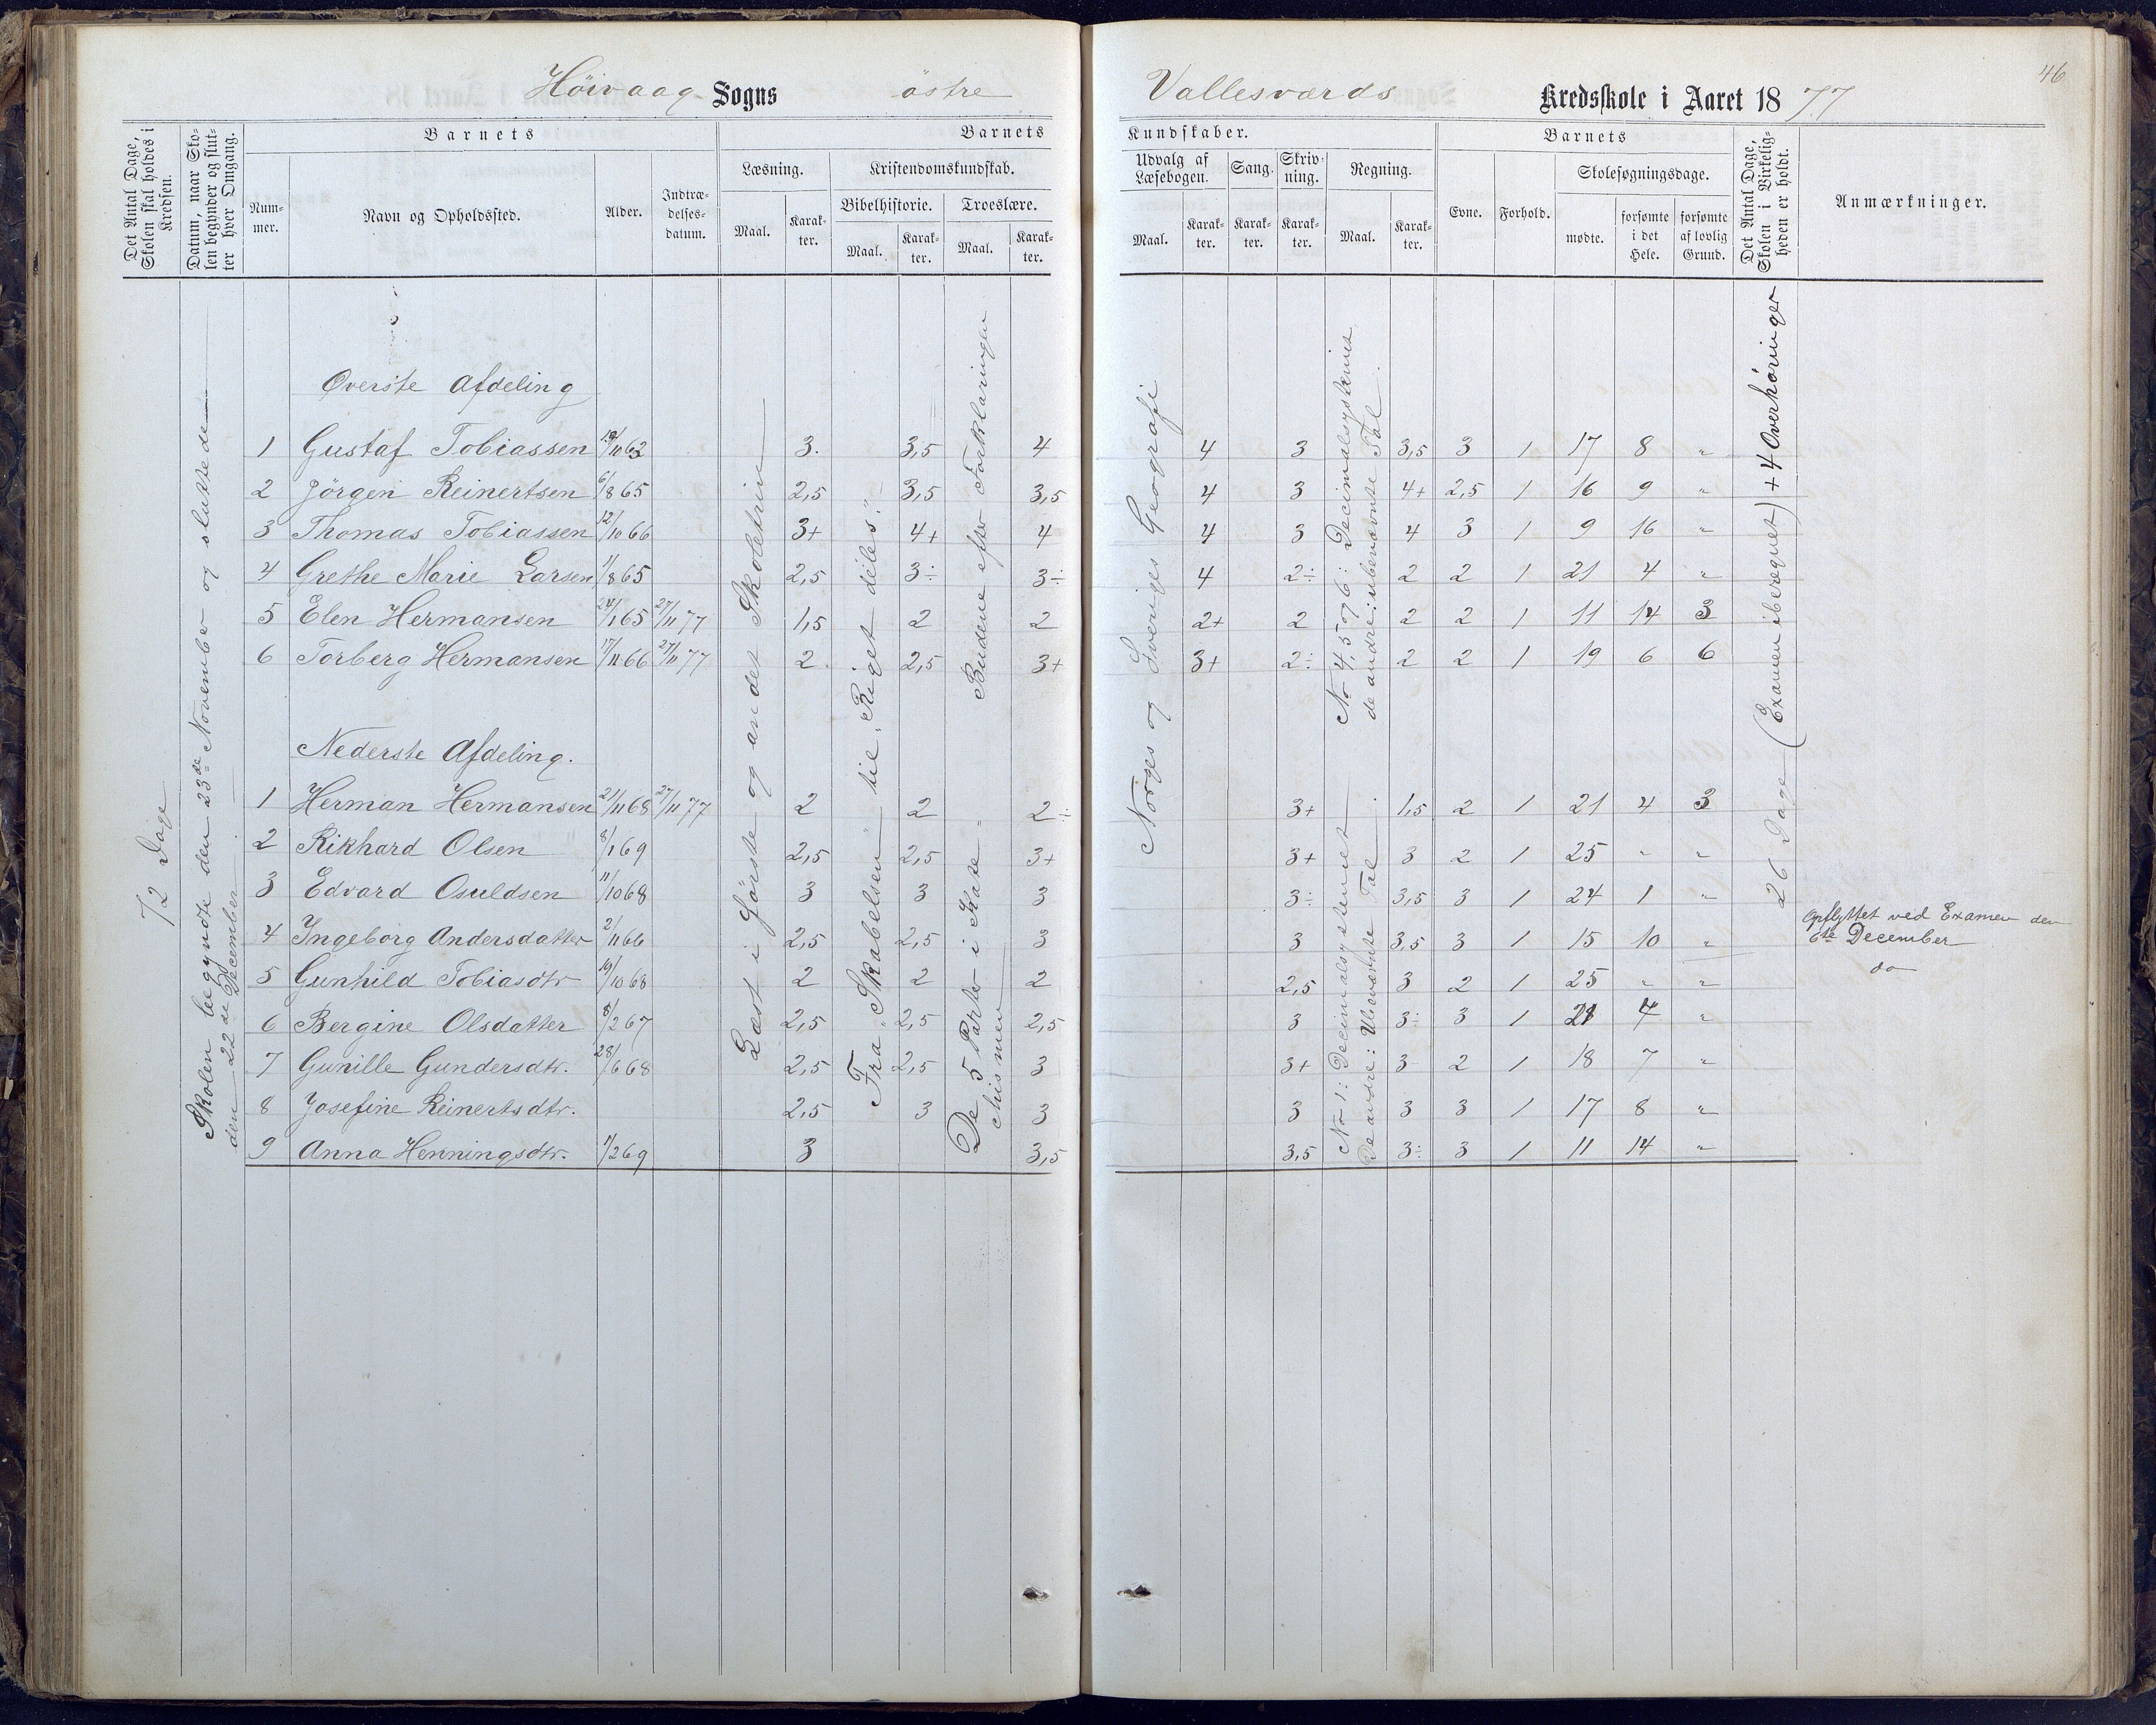 46
Höivaag Sogns östre Vallesværds Kredsskole i Aaret 1877
Det Antal Dage, Skolen skal holdes i Kredsen.
Datum, naar Skolen begynder og slutter hver Omgang.
Barnets
Nummer.
Navn og Opholdssted.
Alder.
Indtrædelsesdatum.
Barnets
Læsning.
Maal.
Karakter.
Kristendomskundskab.
Bibelhistorie.
Maal.
Karakter.
Troeslære.
Maal.
Karakter.
Kundskaber.
Udvalg af Læsebogen.
Maal.
Karakter.
Sang.
Karakter.
Skrivning.
Karakter.
Regning.
Maal.
Karakter.
Barnets
Evne.
Forhold.
Skolesøgningsdage.
mødte.
forsømte i det Hele.
forsømte af lovlig Grund.
Det Antal Dage, Skolen i Virkeligheden er holdt.
Anmærkninger.
72 Dage
Skolen begyndte den 23de November og sluttede
den 22de December
Læst i første og andet Skoletrin
Fra „Skabelsen" til „Riget deles".
Budene efter Forklaringen
De 5 Parter i Kate-
chismen
Norges og Sveriges Geografi
No 4, 5 og 6: Decimalsystemet
de andre: ubenævnte Tal.
No 1: Decimalsystemet
De andre: Ubenævnte Tal
26 Dage (Examen iberegnet) + 4 Overhøringer
Øverste Afdeling
1 Gustaf Tobiassen 19/11 63 3. 3,5 4 4 3 3,5 3 1 17 8 "
2 Jörgen Reinertsen 6/8 65 2,5 3,5 3,5 4 3 4+ 2,5 1 16 9 "
3 Thomas Tobiassen 12/10 66 3+ 4+ 4 4 3 4 3 1 9 16 "
4 Grethe Marie Larsen 1/8 65 2,5 3÷ 3÷ 4 2÷ 2 2 1 21 4 "
5 Elen Hermansen 24/1 65 27/11 77 1,5 2 2 2+ 2 2 2 1 11 14 3
6 Torberg Hermansen 17/11 66 27/11 77 2 2,5 3+ 3+ 2÷ 2 2 1 19 6 6
Nederste Afdeling.
1 Herman Hermansen 21/11 68 27/11 77 2 2 2÷ 3+ 1,5 2 1 21 4 3
2 Rikhard Olsen 8/1 69 2,5 2,5 3+ 3+ 3 2 1 25 " "
3 Edvard Osuldsen 11/10 68 3 3 3 3÷ 3,5 3 1 24 1 "
4 Ingeborg Andersdatter 2/11 66 2,5 2,5 3 3 3,5 3 1 15 10 " Opflyttet ved Examen den
6te December
5 Gunhild Tobiasdtr 19/10 68 2 2 2 2,5 3 2 1 25 " " do
6 Bergine Olsdatter 8/2 67 2,5 2,5 2,5 3 3÷ 3 1 21 4 "
7 Gunille Gundersdtr. 28/6 68 2,5 2,5 3 3+ 3 2 1 18 7 "
8 Josefine Reinertsdtr. 2,5 3 3 3 3 3 1 17 8 "
9 Anna Henningsdtr. 1/2 69 3 3,5 3,5 3÷ 3 1 11 14 "